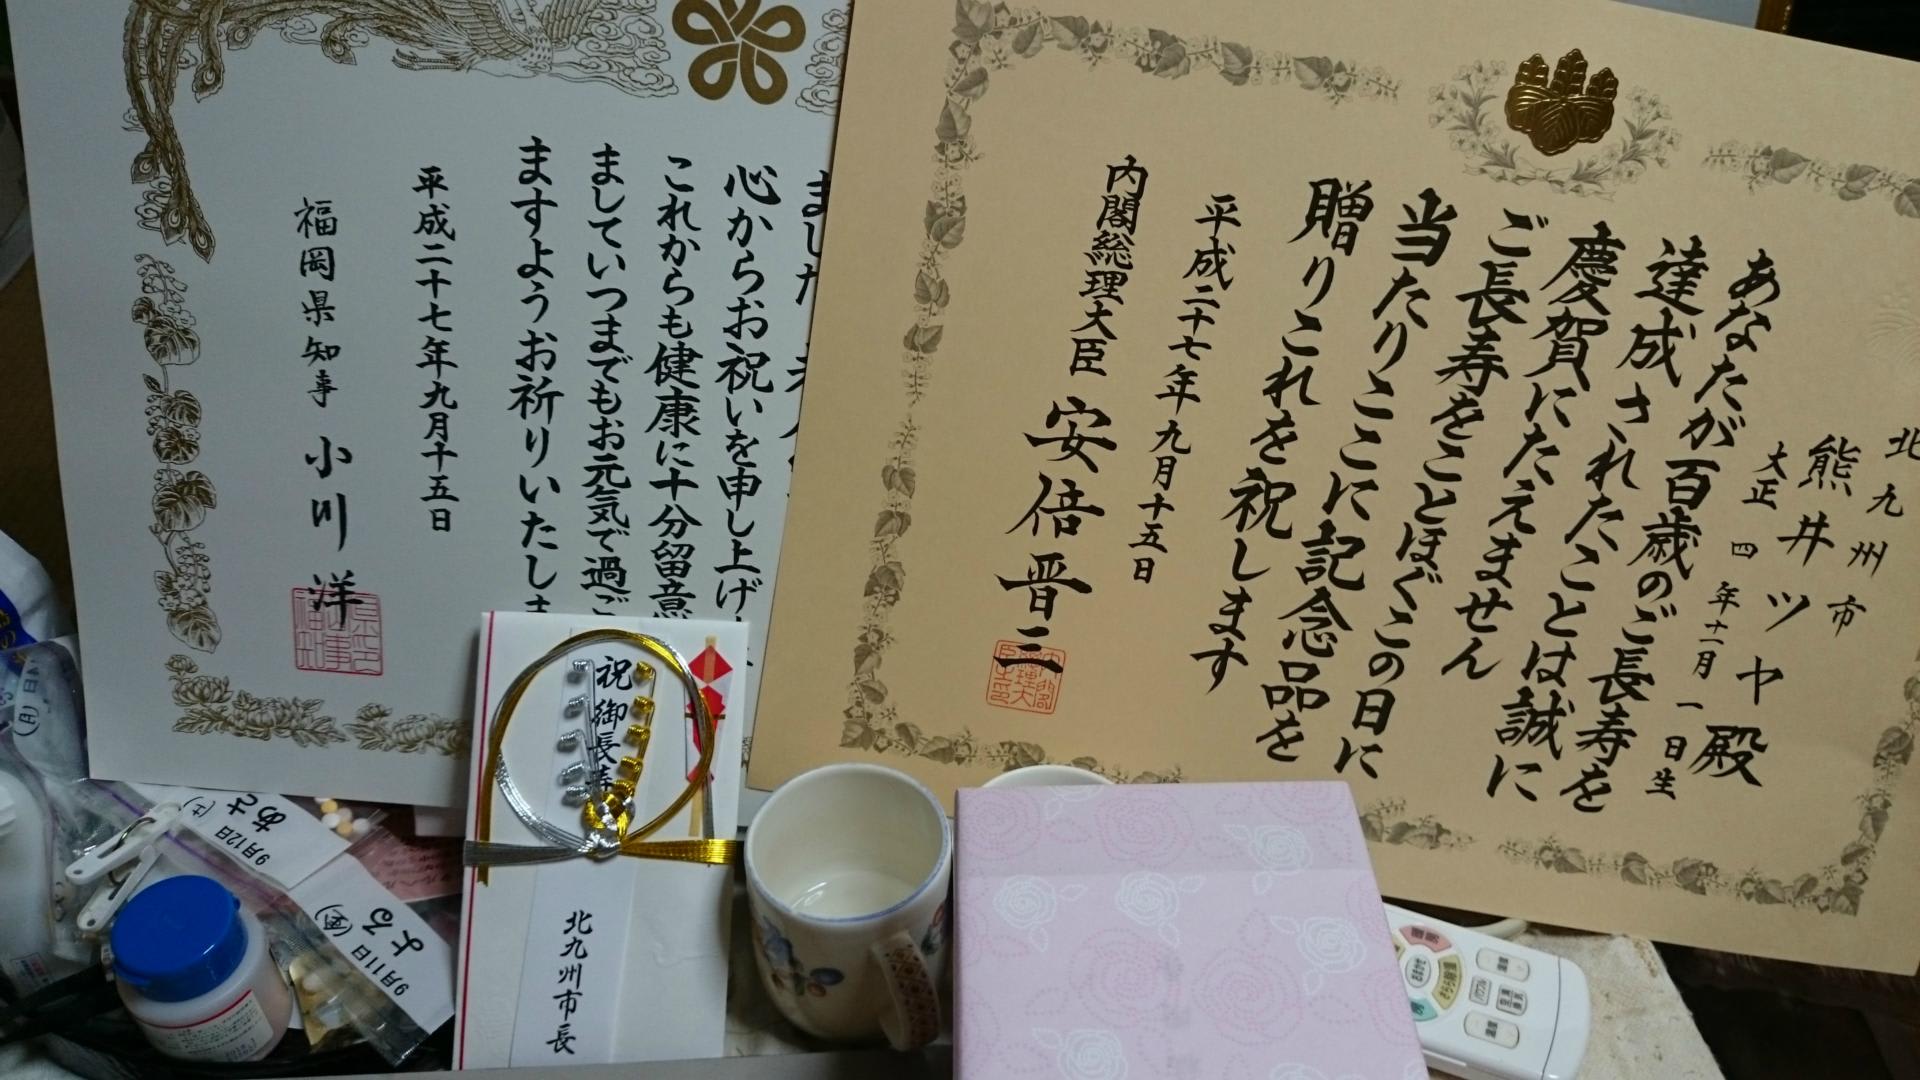 北九州市
熊井ツヤ殿
大正四年十一月一日生
あなたが百歳のご長寿を
達成されたことは誠に
慶賀にたえません
ご長寿をことほぐこの日に
当たりここに記念品を
贈りこれを祝します
平成二十七年九月十五日
内閣総理大臣 安倍晋三
ました
心からお祝いを申し上げ
これからも健康に十分留意
ましていつまでもお元気で過ご
ますようお祈りいたしま
平成二十七年九月十五日
福岡県知事 小川洋
祝御長寿
北九州市長
9月12日(土)
あさ
9月11日(金)
よる